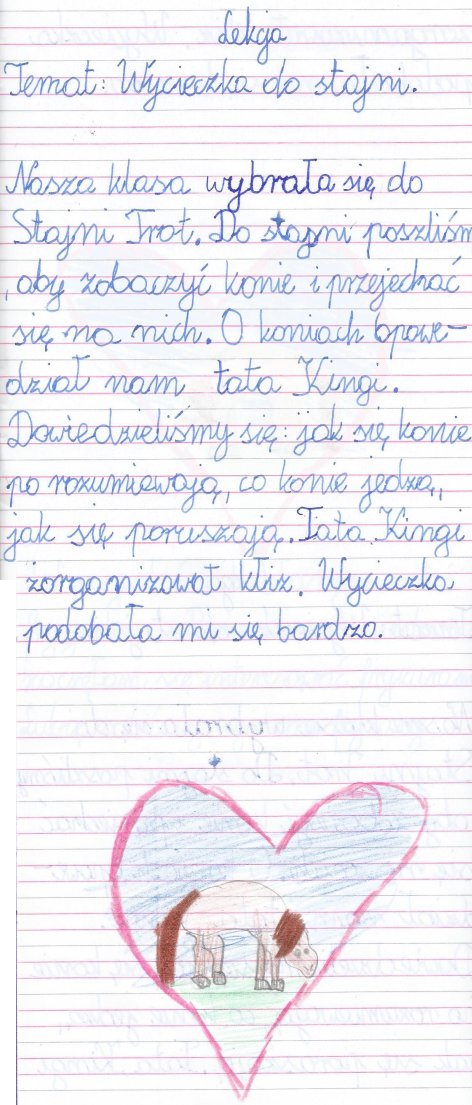 Lekcja
Temat: Wycieczka do stajni.
Nasza klasa wybrała się do
Stajni Trot. Do stajni poszliśm
, aby zobaczyć konie i przejechać
się na nich. O koniach opowie-
dział nam tata Kingi.
Dowiedzieliśmy się: jak się konie
po rozumiewają, co konie jedzą,
jak się poruszają. Tata Kingi
zorganizował kłiz. Wycieczka
podobała mi się bardzo.